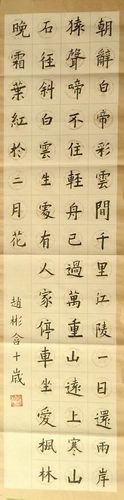 朝辭白帝彩雲間千里江陵一日還兩岸
猿聲啼不住輕舟已過萬重山遠上寒山
石徑斜白雲生處有人家停車坐愛楓林
晚霜葉紅於二月花
趙彬含十歲